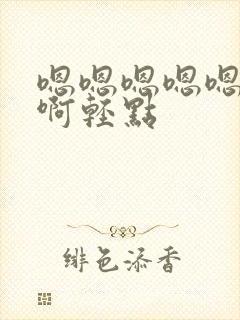 嗯嗯嗯嗯嗯
啊轻點
绯色添香